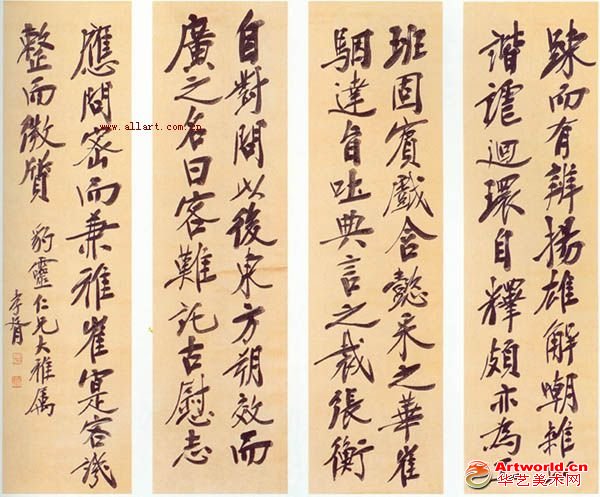 踈而有辨揚雄解嘲雜以
諧謔迴環自釋頗亦為
班固賓戲含懿采之華崔
駰達旨吐典言之裁張衡
自對問以後東方朔效而
廣之名曰客難託古慰志
應問密而兼雅崔寔客譏
整而微質
豹靈仁兄大雅属
孝胥
www.allart.com.cn
Artworld.cn
华艺美术网